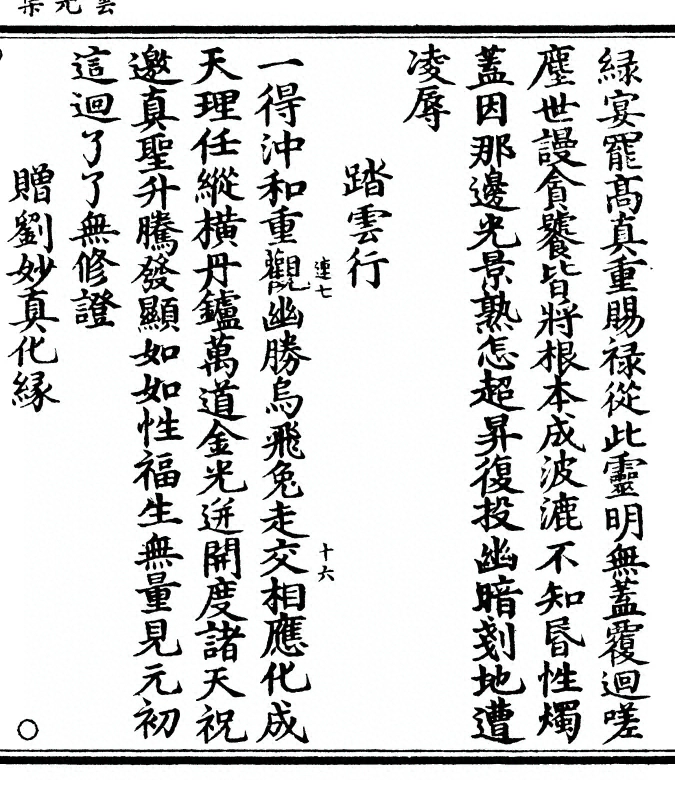 緑宴罷高真重賜禄從此靈明無蓋覆迴嗟
塵世謾貪饕皆將根本成波漉不知昏性燭
蓋因那邊光景熟怎超昇復投幽暗刬地遭
凌辱
踏雲行
連七
十六
一得沖和重觀幽勝烏飛兔走交相應化成
天理任縱橫丹鑪萬道金光迸開度諸天祝
邀真聖升騰發顯如如性福生無量見元初
這迴了了無修證
贈劉妙真化縁
○